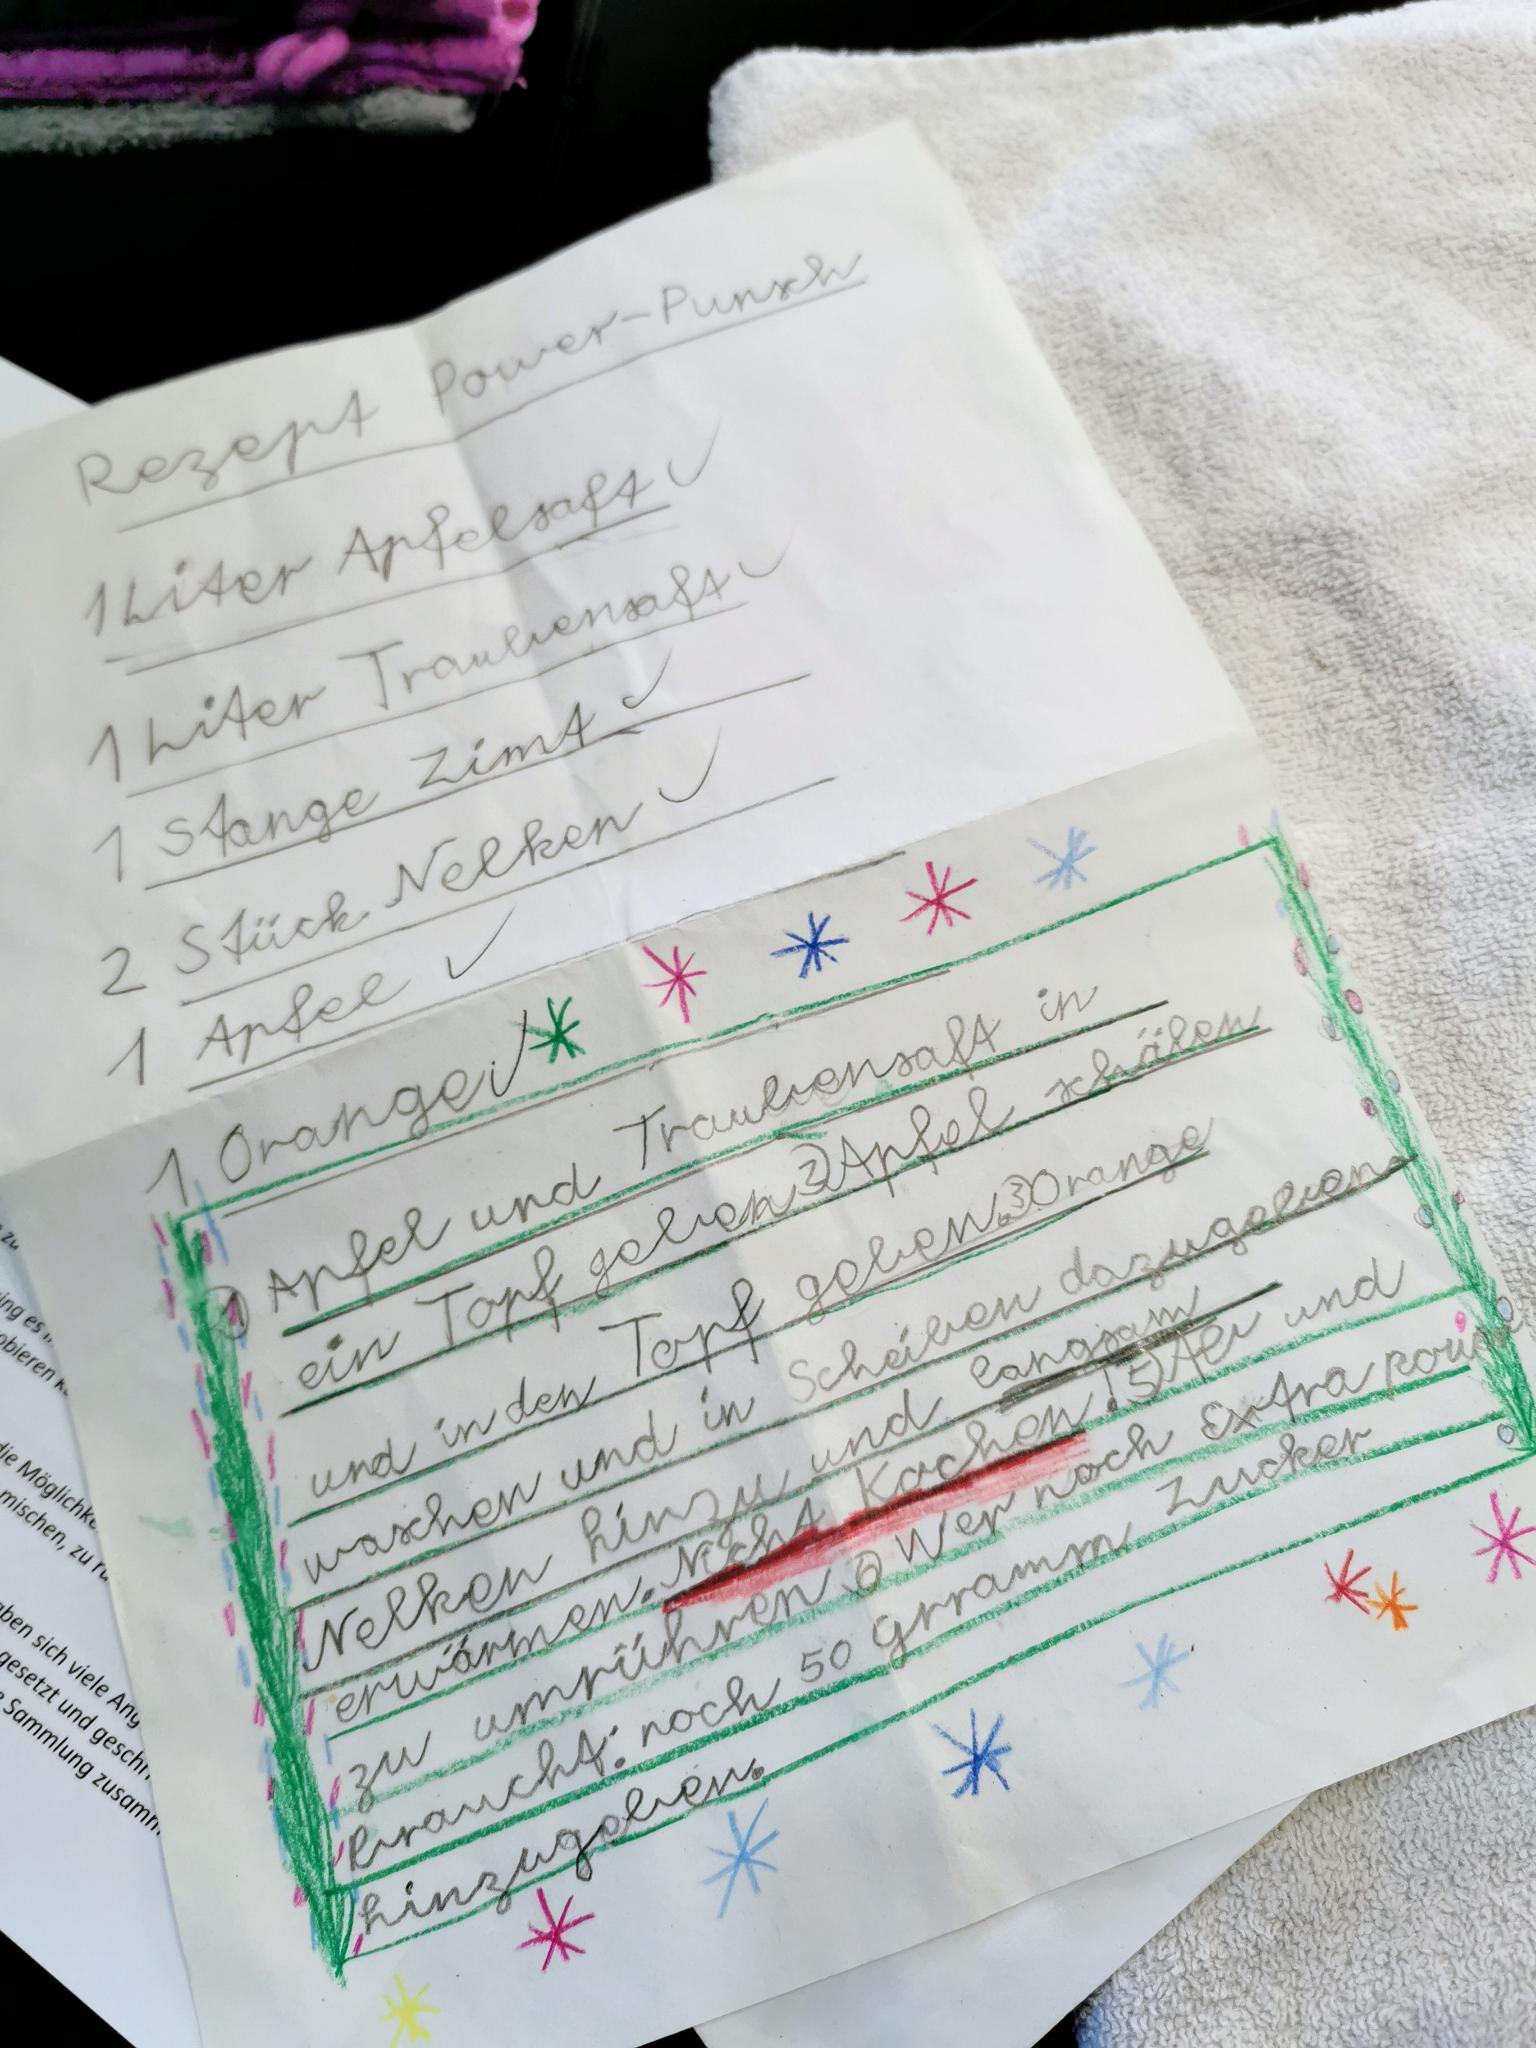 Rezept Power-Punsch
1 Liter Apfelsaft ✓
1 Liter Traubensaft ✓
1 Stange Zimt ✓
2 Stück Nelken ✓
1 Apfel ✓
1 Orange ✓
① Apfel und Traubensaft in
ein Topf geben ② Apfel schälen
und in den Topf geben. ③ Orange
waschen und in Scheiben dazugeben.
Nelken hinzu und langsam
erwärmen. Nicht Kochen! ⑤ Ab und
zu umrühren ⑥ Wer noch Extra
braucht: noch 50 grramm Zucker
hinzugeben.
zu
ing es
obieren
die Möglichke
mischen, zu
aben sich viele Ang
gesetzt und geschr
Sammlung zusamm